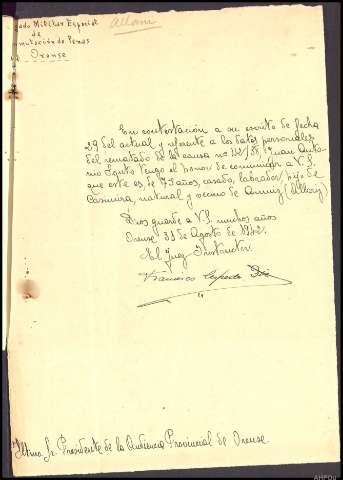 gado Militar Especial
de
nmutación de Penas
Orense
Allariz
En contestación a su escrito de fecha
29 del actual y refrente a los datos personales
del rematado de la causa nº 22/38, Juan Anto-
nio tengo el honor de comunicar a V.S.
que este es de 43 años, casado, labrador, hijo de
natural y vecino de (Allariz)
Dios guarde a V.S. muchos años
Orense 31 de Agosto de 1942.
El Juez Instructor
Francisco
Iltmo Sr. Presidente de la Audiencia Provincial de Orense
AHPOu